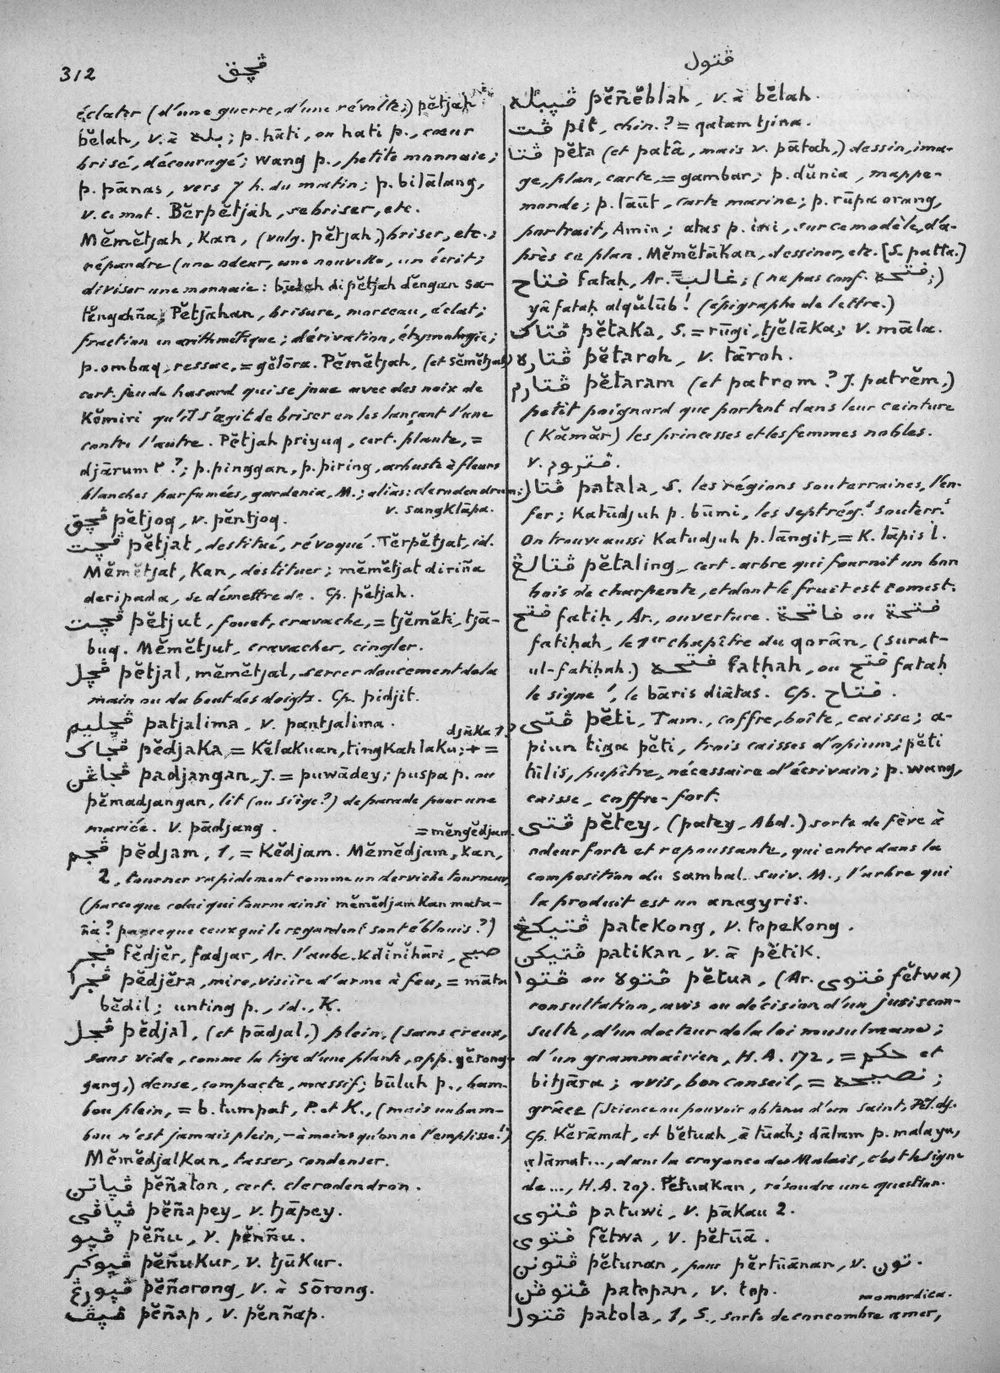 312
ڤچق
ڤتول
éclater (d'une guerre, d'une révolte;) pĕtjah
bĕlah, v. à بله; p. hāti, ou hati p., cœur
brisé, découragé; wang p., petite monnaie;
p. pānas, vers 7 h. du matin; p. bilālang,
v. ce mot. Bĕrpĕtjah, se briser, etc.
Mĕmĕtjah, Kan, (vulg. pĕtjah,) briser, etc.;
répandre (une odeur, une nouvelle, un écrit;
diviser une monnaie: būleh di pĕtjah dĕngan sa-
tĕngahña; Pĕtjāhan, brisure, morceau, éclat;
fraction en arithmétique; dérivation, étymologie;
p. ombaq, ressac, = gĕlōra. Pĕmĕtjah, (et sĕmĕtjah)
cert. jeu de hasard qui se joue avec des noix de
Kĕmiri qu'il s'agit de briser en les lançant l'une
contre l'autre. Pĕtjah priyuq, cert. plante, =
djārum ?; p. pinggan, p. piring, arbuste à fleurs
blanches parfumées, gardenia, M.; aliàs: clerodendrum;
v. sangklāpa.
ڤچق pĕtjoq, v. pĕntjoq.
ڤچت pĕtjat, destitué, révoqué. Tĕrpĕtjat, id.
Mĕmĕtjat, Kan, destituer; mĕmĕtjat diriña
deripada, se démettre de. Cp. pĕtjah.
ڤچت pĕtjut, fouet, cravache, = tjĕmĕti, tjā-
buq. Mĕmĕtjut, cravacher, cingler.
ڤچل pĕtjal, mĕmĕtjal, serrer doucement de la
main ou du bout des doigts. Cp. pidjit.
ڤچليم patjalima, v. pantjalima.
djāka 1?
ڤجاک pĕdjaKa, = KĕlaKuan, tingKah laKu; + =
ڤجاڠن padjangan, J. = puwādey; puspa p. ou
pĕmadjangan, lit (ou siège?) de parade pour une
mariée. V. pādjang.
= mĕngĕdjam.
ڤجم pĕdjam, 1, = Kĕdjam. Mĕmĕdjam, Kan,
2, tourner rapidement comme un derviche tourneur,
(parce que celui qui tourne ainsi mĕmĕdjamKan mata-
ña? parce que ceux qui le regardent sont éblouis?)
فجر fĕdjĕr, fadjar, Ar. l'aube. K diñihāri, صبح
ڤجرا pĕdjĕra, mire, visière d'arme à feu, = māta
bĕdil; unting p., id., K.
ڤجل pĕdjal, (et pādjal,) plein, (sans creux,
sans vide, comme la tige d'une plante, opp. gĕrong-
gang,) dense, compacte, massif; būluh p., bam-
bou plein, = b. tumpat, P. et K., (mais un bam-
bou n'est jamais plein, – à moins qu'on ne l'emplisse!)
MĕmĕdjalKan, tasser, condenser.
ڤڽاتن pĕñaton, cert. clerodendron.
ڤڽاڤي pĕñapey, v. tjāpey.
ڤڽو pĕñu, v. pĕnñu.
ڤڽوکر pĕñuKur, v. tjūKur.
ڤڽورڠ pĕñorong, v. à sōrong.
ڤڽڤ pĕñap, v. pĕnñap.
ڤڽبله pĕñĕblah, v. à bĕlah.
ڤت pit, chin.? = qalam tjina.
ڤتا pĕta (et patā, mais v. pātah,) dessin, ima-
ge, plan, carte, = gambar; p. dŭnia, mappe-
monde; p. lāūt, carte marine; p. rūpa orang,
portrait, Amin; atas p. ini, sur ce modèle, d'a-
près ce plan. MĕmĕtāKan, dessiner, etc. [S. patta.]
فتاح fatah, Ar. = غالب; (ne pas conf. فتحه;)
yā fataḥ alqŭlūb! (épigraphe de lettre.)
ڤتاک pĕtaKa, S. = rūgi, tjĕlāKa; v. māla.
ڤتاره pĕtaroh, v. tāroh.
ڤتارم pĕtaram (et patrom? J. patrĕm,)
petit poignard que portent dans leur ceinture
(Kămăr) les princesses et les femmes nobles.
v. ڤتروم.
ڤتال patala, S. les régions souterraines, l'en-
fer; Katūdjuh p. būmi, les sept rég.s souterr.s
On trouve aussi Katudjuh p. lāngit, = K. lāpis l.
ڤتالڠ pĕtaling, cert. arbre qui fournit un bon
bois de charpente, et dont le fruit est comest.
فتح fatiḥ, Ar., ouverture. فاتحة ou فتحة
fatiḥah, le 1er chapître du qorân, (surat-
ul-fatiḥah.) فتحه fatḥah, ou فتح fataḥ
le signe ', le bāris diātas. Cp. فتاح.
ڤتي pĕti, Tam., coffre, boîte, caisse; a-
piun tiga pĕti, trois caisses d'opium; pĕti
tūlis, pupître, nécessaire d'écrivain; p. wang,
caisse, coffre-fort.
ڤتي pĕtey, (patey, Abd.) sorte de fève à
odeur forte et repoussante, qui entre dans la
composition du sambal. Suiv. M., l'arbre qui
la produit est un anagyris.
ڤتيکڠ pateKong, v. topeKong.
ڤتيکن patiKan, v. à pĕtiK.
ڤتوا ou ڤتوه pĕtua, (Ar. فتوى fĕtwa)
consultation, avis ou décision d'un juriscon-
sulte, d'un docteur de la loi musulmane;
d'un grammairien, H.A. 172, = حکم et
bitjāra; avis, bon conseil, = نصيحه;
grâce (science ou pouvoir obtenu d'un saint, Pĕl. dj.
Cp. Kĕrāmat, et bĕtuah, à tūah; dālam p. malayu,
alāmat..., dans la croyance des Malais, c'est le signe
de..., H.A. 207. PĕtuaKan, résoudre une question.
ڤتوي patuwi, v. pāKau 2.
فتوى fĕtwa, v. pĕtūā.
ڤتونن pĕtunan, pour pĕrtūānan, v. تون.
ڤتوڤن patopan, v. top.
momordica.
ڤتول patola, 1, S., sorte de concombre amer,